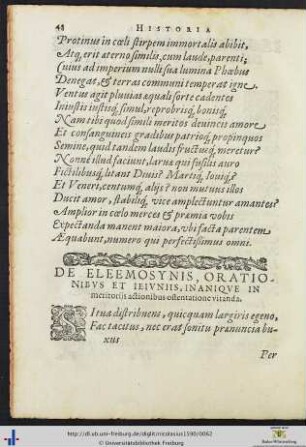 48 HISTORIA
Protinus in cœli stirpem immortalis abibit,
Atq, erit æterno similis, cum laude, parenti;
Cuius ad imperium nulli sua lumina Phœbus
Denegat, & terras communi temperat igne,
Ventus agit pluuias æquali sorte cadentes
Iniustis iustisq, simul, reprobrisq, bonisq,
Nam tibi quod simili meritos deuincis amore
Et consanguineis gradibus patrioq, propinquos
Semine, quid tandem laudis fructusq, meretur?
Nonne illud faciunt, larua qui fusilis auro
Fictilibusq, litant Diuis? Martiq, Iouiq,?
Et Veneri, centumq, alijs? non mutuus illos
Ducit amor, stabiliq, vice amplectuntur amantes?
Amplior in cœlo merces & præmia vobis
Expectanda manent maiora, vbi facta parentem
Æquabunt, numero qui perfectissimus omni.
DE ELEEMOSYNIS, ORATIO-
NIBVS ET IEIVNIIS, INANIQVE IN
meritorijs actionibus ostentatione vitanda.
SI tua distribuens, quicquam largiris egeno,
Fac tacitus, nec erat sonitu prænuncia bu-
xus
Per
http://dl.ub.uni-freiburg.de/diglit/nicolaus
© Universitätsbibliothek Freiburg
Baden-Württemberg